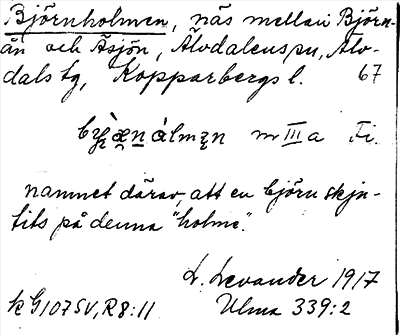 Björnholmen, näs mellan Björn-
ån och Äsjön, Älvdalens sn, Älv-
dals tg, Kopparbergs l. 67
m III a Fi.
namnet därav, att en björn skju-
tits på denna "holme".
L. Levander 1917
kG107SV, R8:11 Ulma 339:2